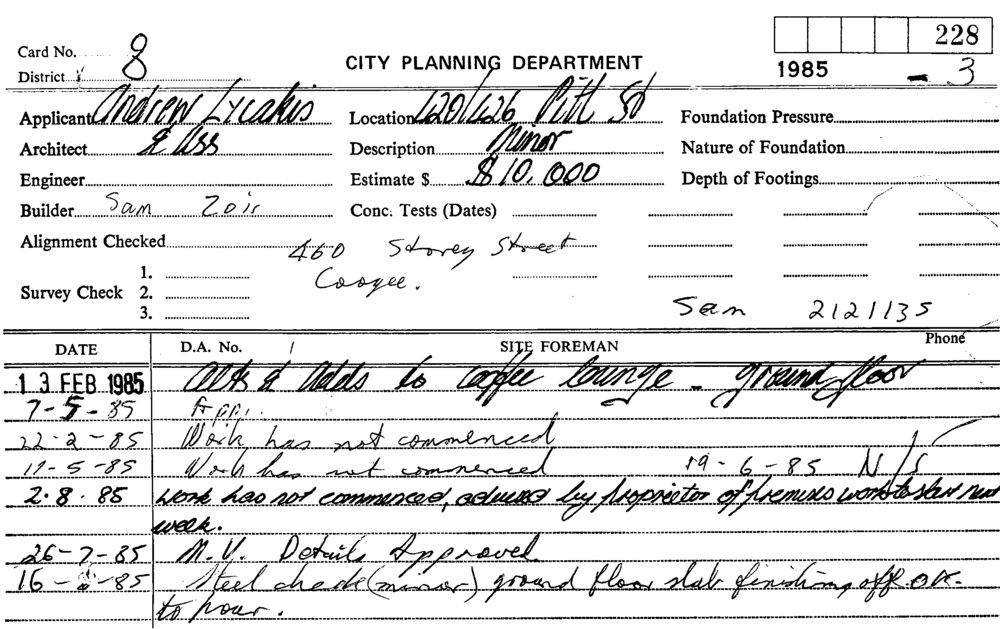 228
Card No. 8
CITY PLANNING DEPARTMENT
1985 - 3
District
Applicant Andrew Lycakis Location 420/426 Pitt St Foundation Pressure
Architect & Ass Description Minor Nature of Foundation
Engineer Estimate $ $10,000 Depth of Footings
Builder Sam Zoir Conc. Tests (Dates)
Alignment Checked 460 Storey Street
1.
Survey Check 2. Coogee.
3.
Sam 2121135
DATE D.A. No. SITE FOREMAN Phone
13 FEB 1985 Alts & Adds to coffee lounge - ground floor
7-5-85 App.
22-2-85 Work has not commenced
17-5-85 Work has not commenced 19-6-85 N/S
2.8.85 work has not commenced, advised by proprietor of premises work to start next
week.
26-7-85 M.V. Details Approved
16- -85 Steel check (minor) ground floor slab finishing off OK
to pour.